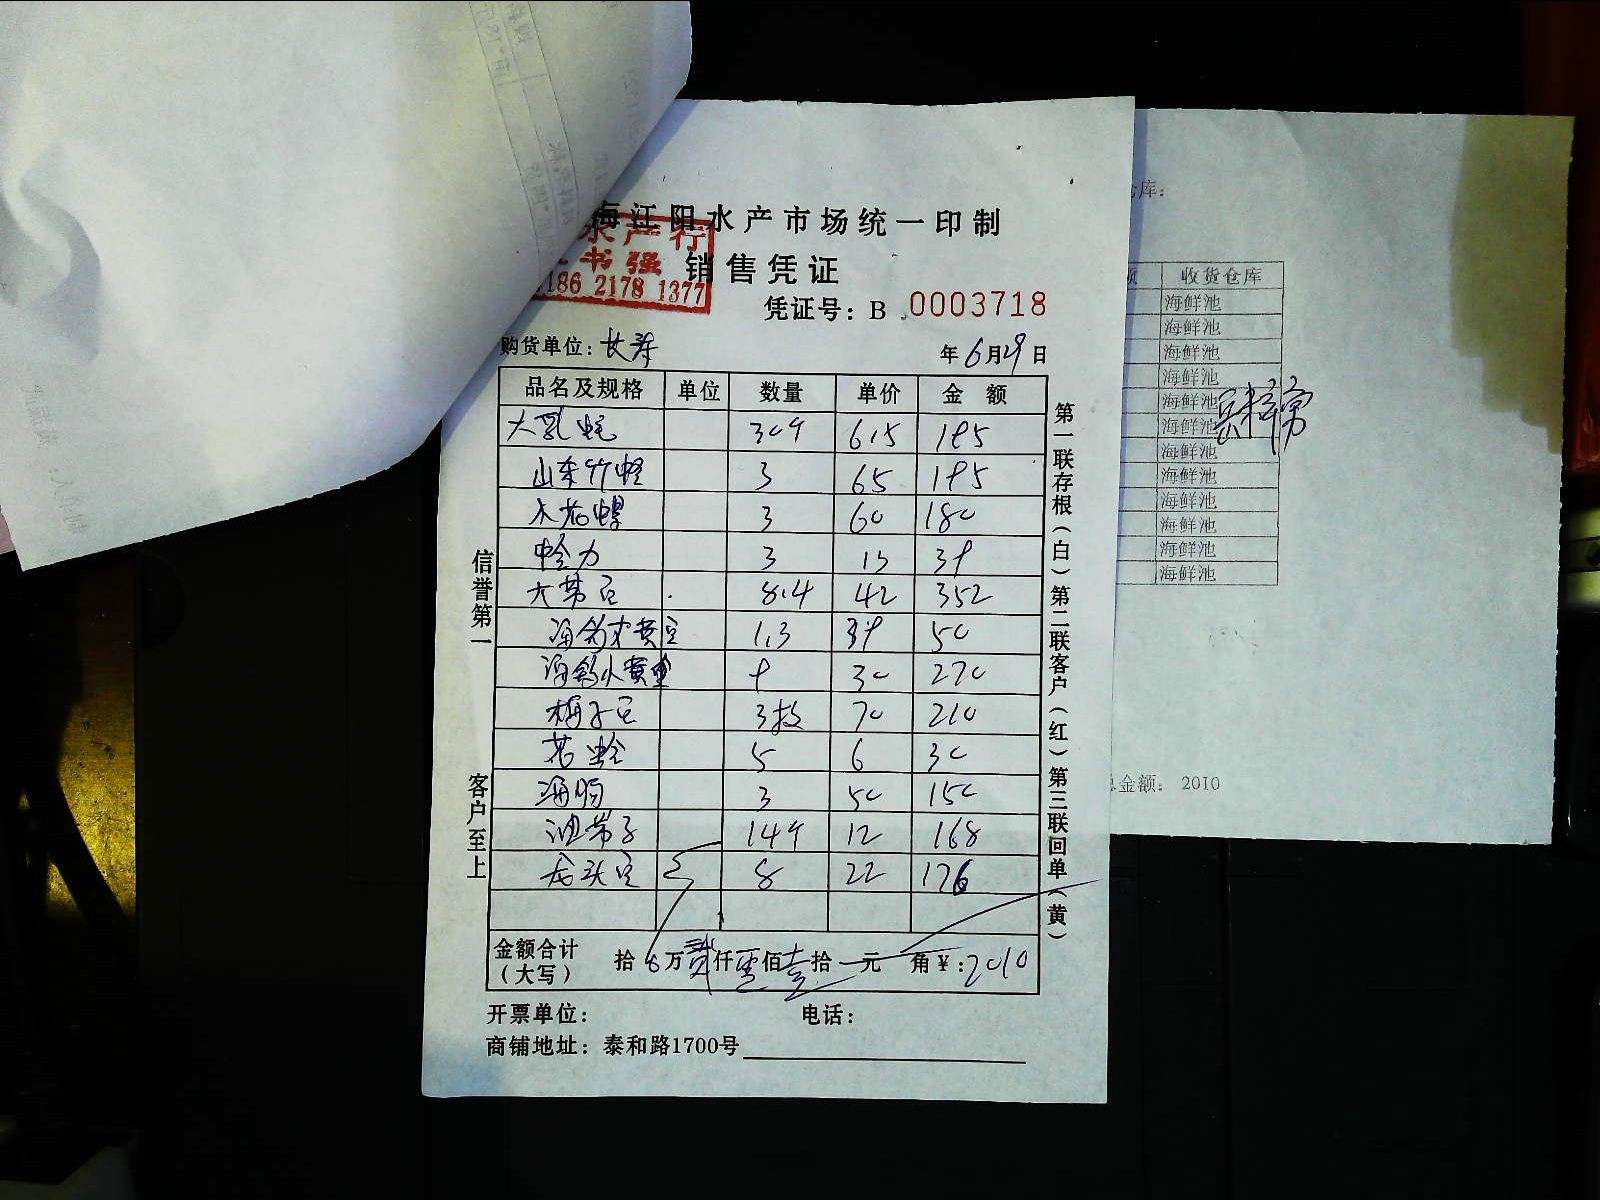 海江阳水产市场统一印制
水产行
书强
186 2178 1377
销售凭证
凭证号：B 0003718
购货单位：
年6月29日
品名及规格 单位 数量 单价 金 额
大乳蚝 30个 6.5 195
山东竹蛏 3 65 195
木花螺 3 60 180
蛤力 3 13 39
大带鱼 8.4 42 352
海钓大黄鱼 1.3 39 50
海钓小黄鱼 9 30 270
梅子鱼 3板 70 210
花蛤 5 6 30
海肠 3 50 150
油带子 14个 12 168
龙头鱼 8 22 176
金额合计（大写） 拾 万贰仟零佰壹拾 元 角￥：2010
开票单位： 电话：
商铺地址：泰和路1700号
信誉第一
客户至上
第一联存根（白）第二联客户（红）第三联回单（黄）
仓库：
额 收货仓库
海鲜池
海鲜池
海鲜池
海鲜池
海鲜池
海鲜池
海鲜池
海鲜池
海鲜池
海鲜池
海鲜池
海鲜池
总金额：2010